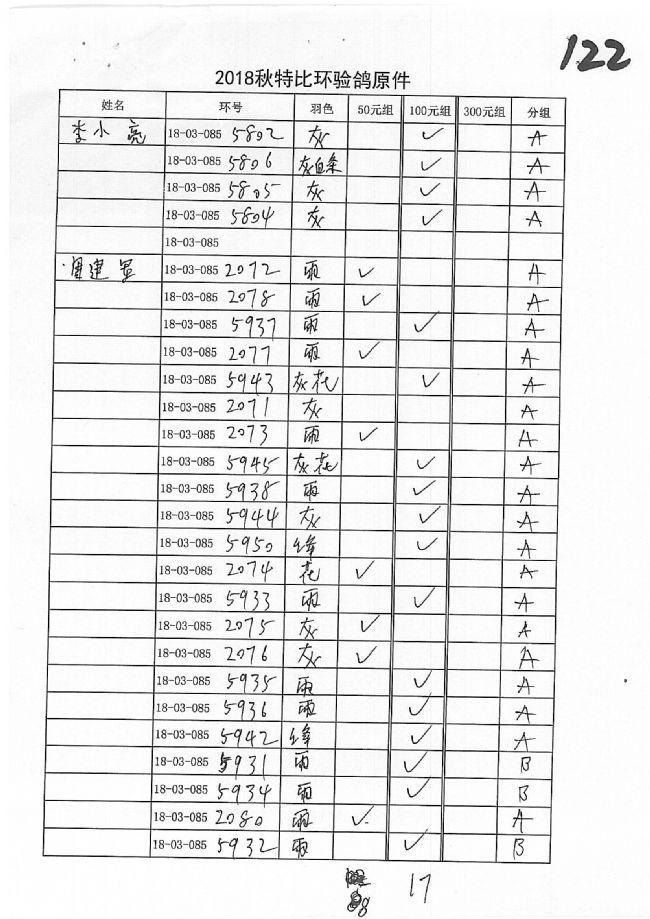 122
2018秋特比环验鸽原件
姓名 环号 羽色 50元组 100元组 300元组 分组
李小亮 18-03-085 5802 灰 ✓ A
18-03-085 5806 灰白条 ✓ A
18-03-085 5805 灰 ✓ A
18-03-085 5804 灰 ✓ A
18-03-085
建 18-03-085 2072 雨 ✓ A
18-03-085 2078 雨 ✓ A
18-03-085 5937 雨 ✓ A
18-03-085 2077 雨 ✓ A
18-03-085 5943 灰花 ✓ A
18-03-085 2071 灰 A
18-03-085 2073 雨 ✓ A
18-03-085 5945 灰花 ✓ A
18-03-085 5938 雨 ✓ A
18-03-085 5944 灰 ✓ A
18-03-085 5950 绛 ✓ A
18-03-085 2074 花 ✓ A
18-03-085 5933 雨 ✓ A
18-03-085 2075 灰 ✓ A
18-03-085 2076 灰 ✓ A
18-03-085 5935 雨 ✓ A
18-03-085 5936 雨 ✓ A
18-03-085 5942 绛 ✓ A
18-03-085 5931 雨 ✓ B
18-03-085 5934 雨 ✓ B
18-03-085 2080 雨 ✓ A
18-03-085 5932 雨 ✓ B
8 17